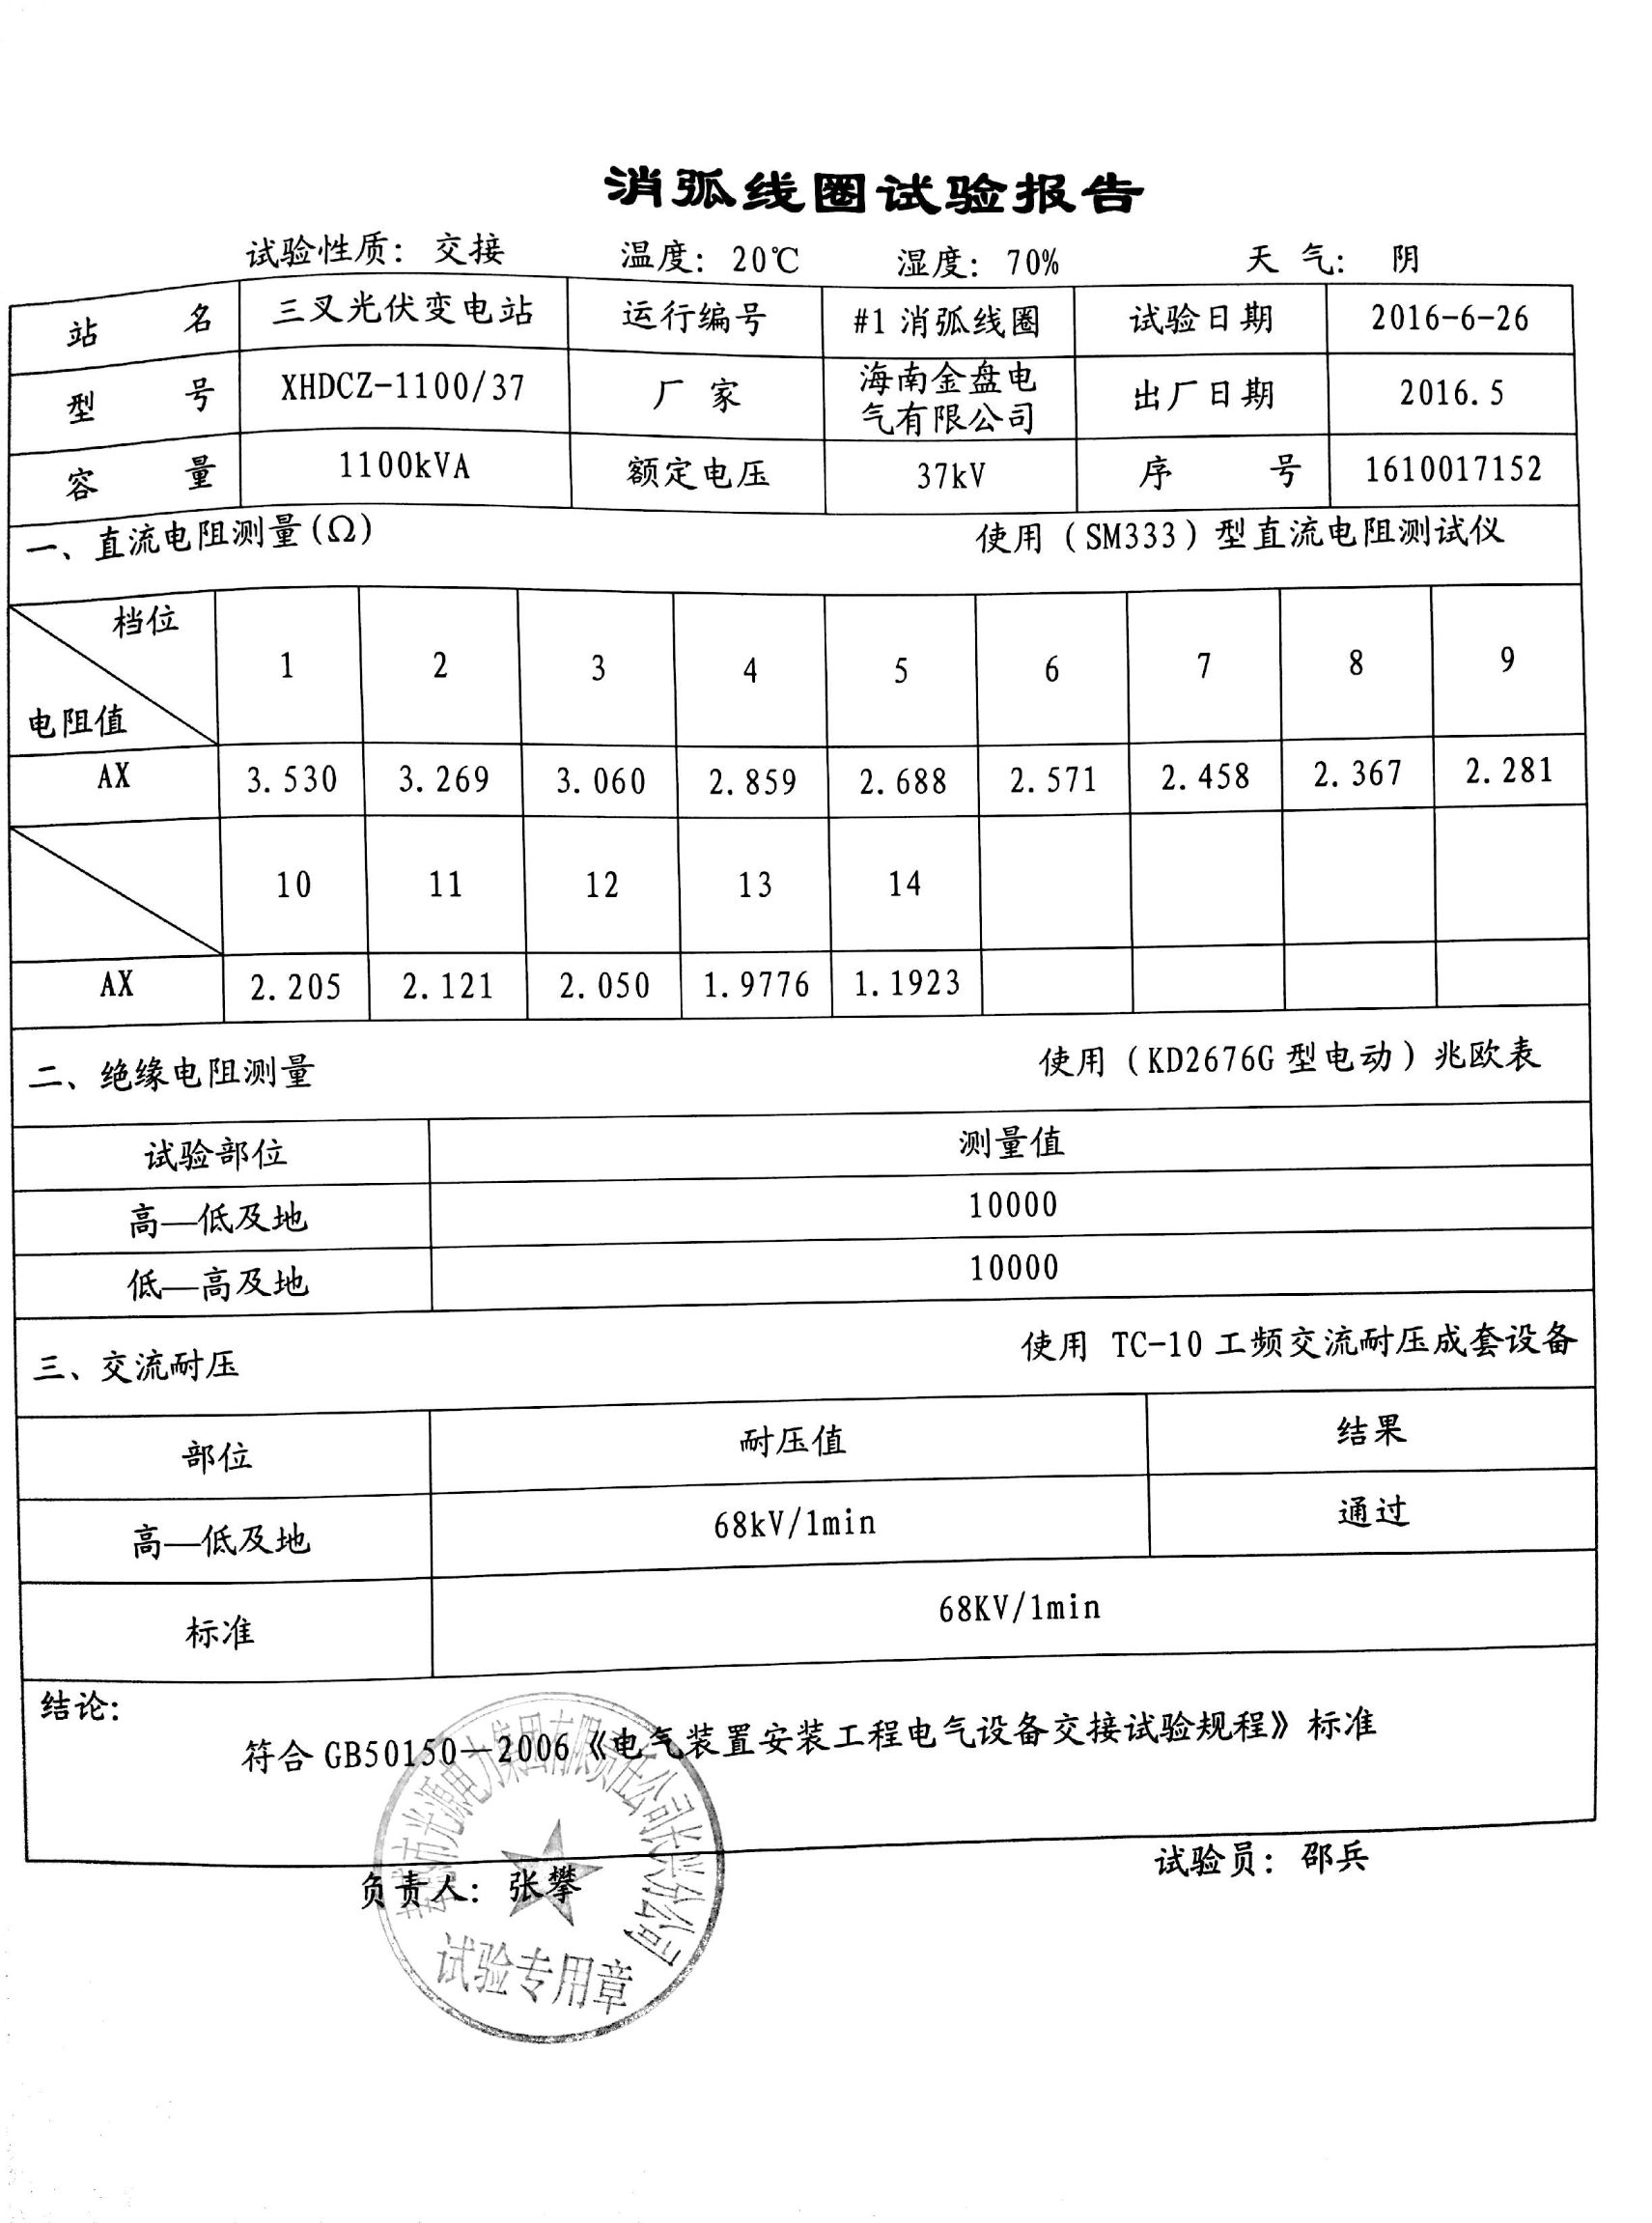 消弧线圈试验报告
试验性质：交接 温度：20℃ 湿度：70% 天 气： 阴
站 名 三叉光伏变电站 运行编号 #1 消弧线圈 试验日期 2016-6-26
型 号 XHDCZ-1100/37 厂 家 海南金盘电气有限公司 出厂日期 2016.5
容 量 1100kVA 额定电压 37kV 序 号 1610017152
一、直流电阻测量(Ω) 使用（SM333）型直流电阻测试仪
档位
电阻值 1 2 3 4 5 6 7 8 9
AX 3.530 3.269 3.060 2.859 2.688 2.571 2.458 2.367 2.281
10 11 12 13 14
AX 2.205 2.121 2.050 1.9776 1.1923
二、绝缘电阻测量 使用（KD2676G 型电动）兆欧表
试验部位 测量值
高—低及地 10000
低—高及地 10000
三、交流耐压 使用 TC-10 工频交流耐压成套设备
部位 耐压值 结果
高—低及地 68kV/1min 通过
标准 68KV/1min
结论：
符合 GB50150—2006《电气装置安装工程电气设备交接试验规程》标准
负责人：张攀 试验员：邵兵
光源电力集团有限责任公司长兴分公司
试验专用章